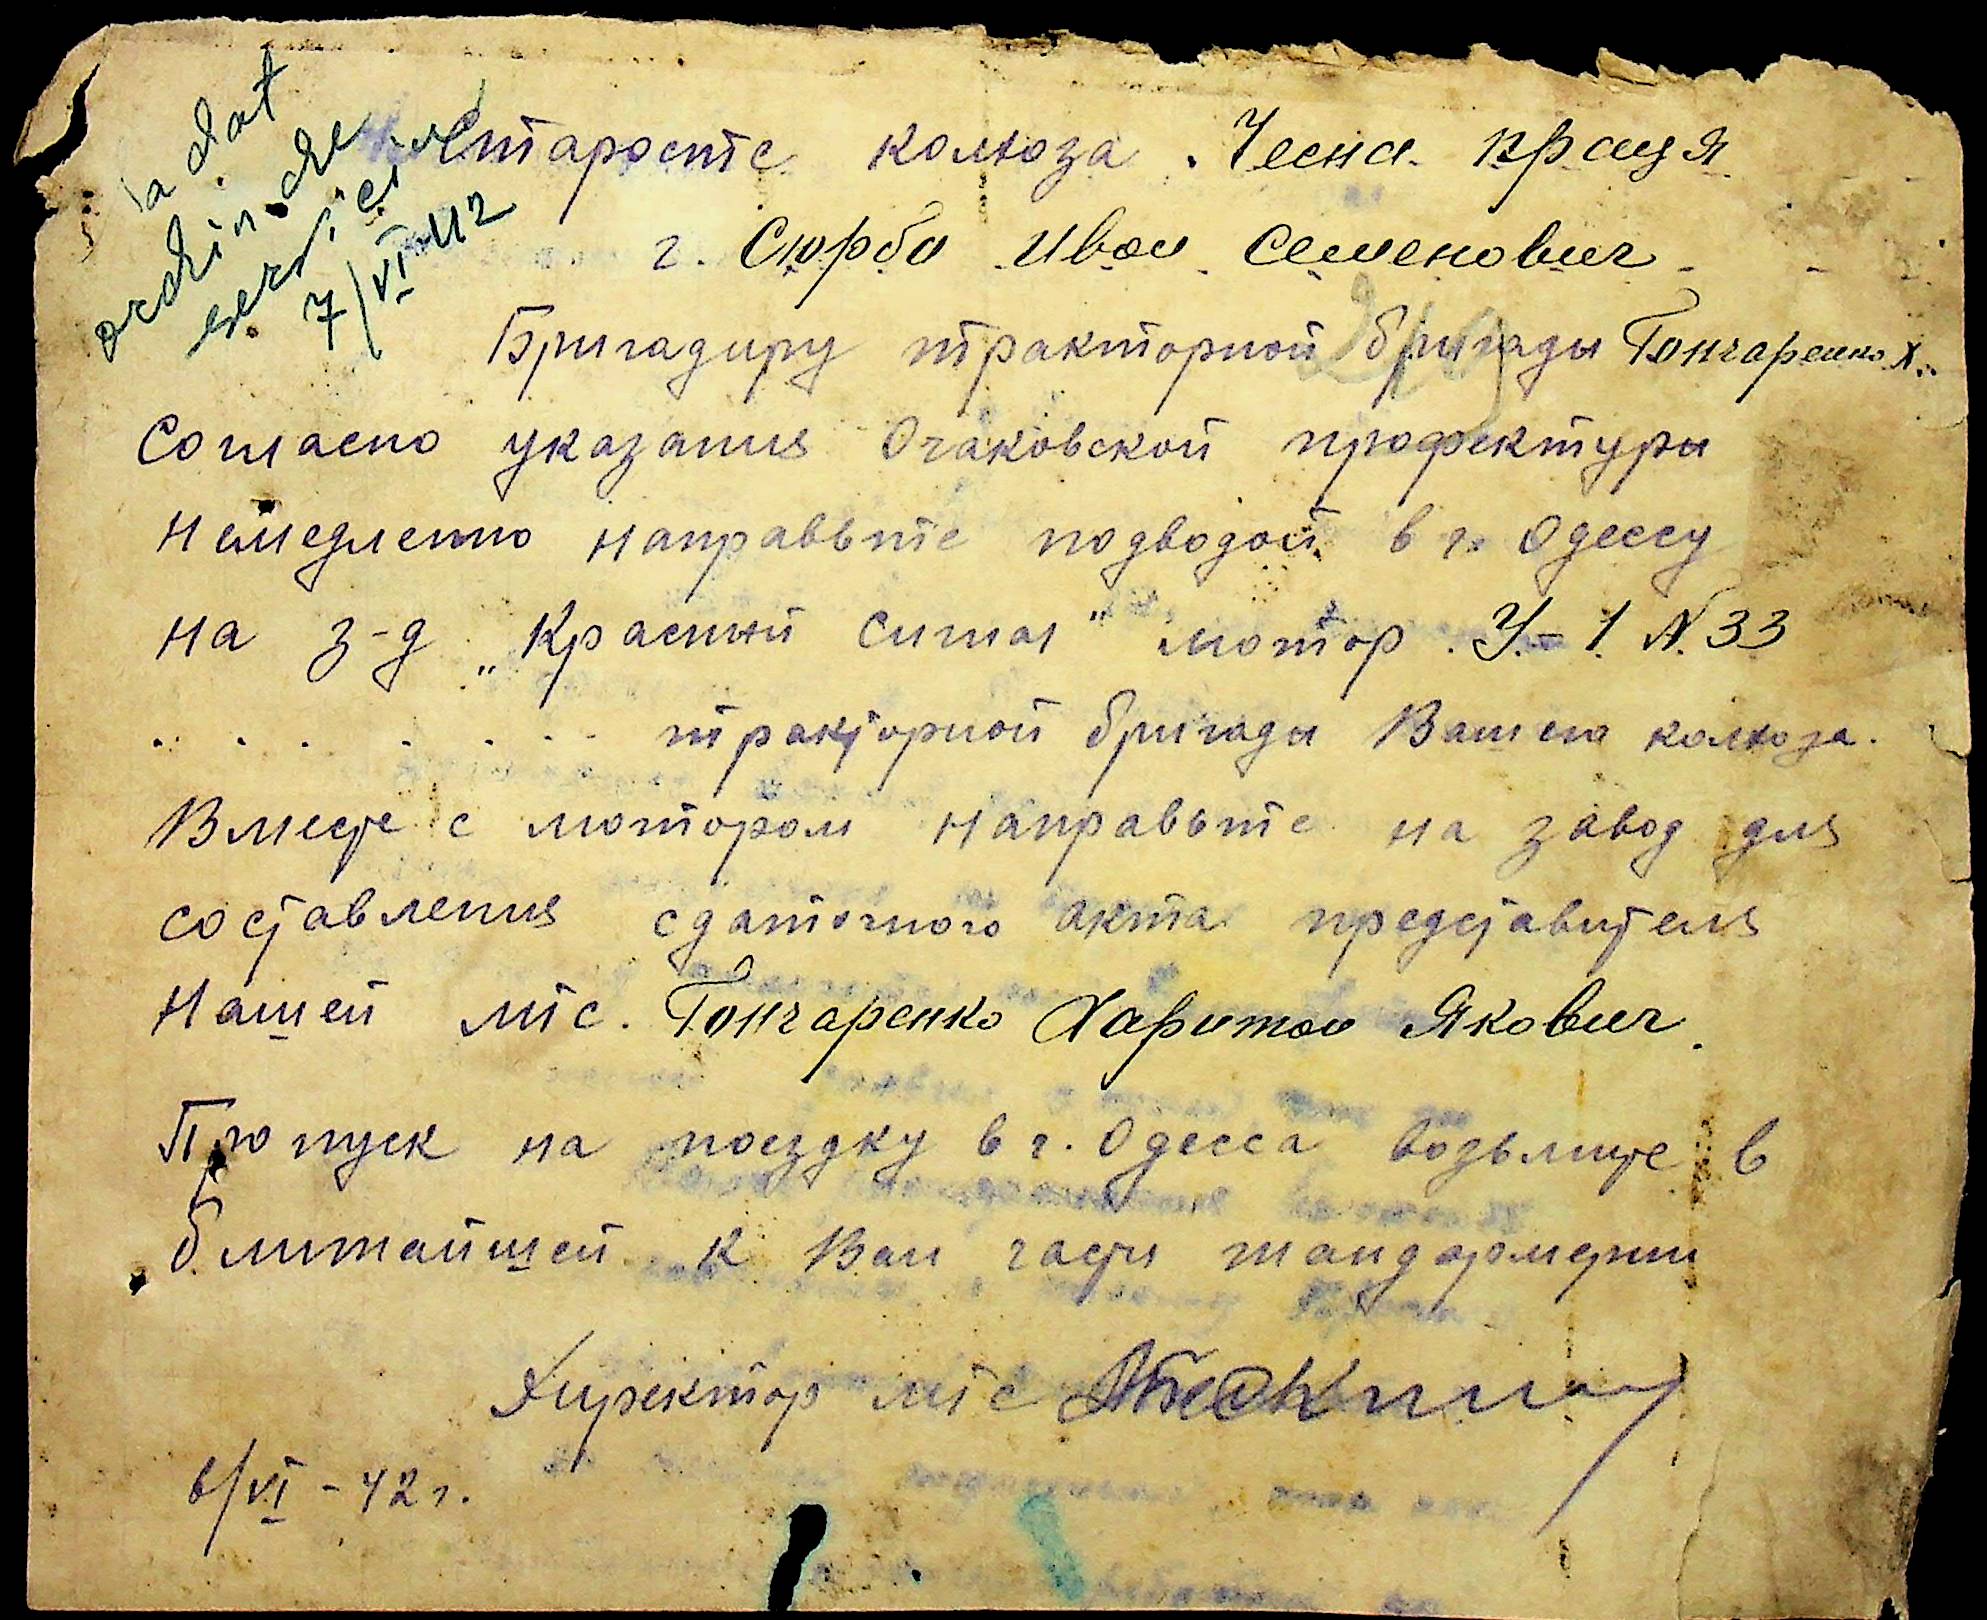 a dat
ordin de
serviciu
7/VI 42
Старосте колхоза Чесна праця
г. Сюрбо Иван Семенович
Бригадиру тракторной бригады Гончаренко Х.
Согласно указания Очаковской префектуры
немедленно направьте подводой в г. Одессу
на з-д „Красный сигнал" мотор У-1 N 33
. . . . . . . тракторной бригады Вашего колхоза.
Вместе с мотором направьте на завод для
составления сдаточного акта представителя
нашей мтс. Гончаренко Харитон Якович.
Пропуск на поездку в г. Одесса возьмите в
ближайшей к Вам части жандармерии
Директор мтс
6/VI - 42 г.